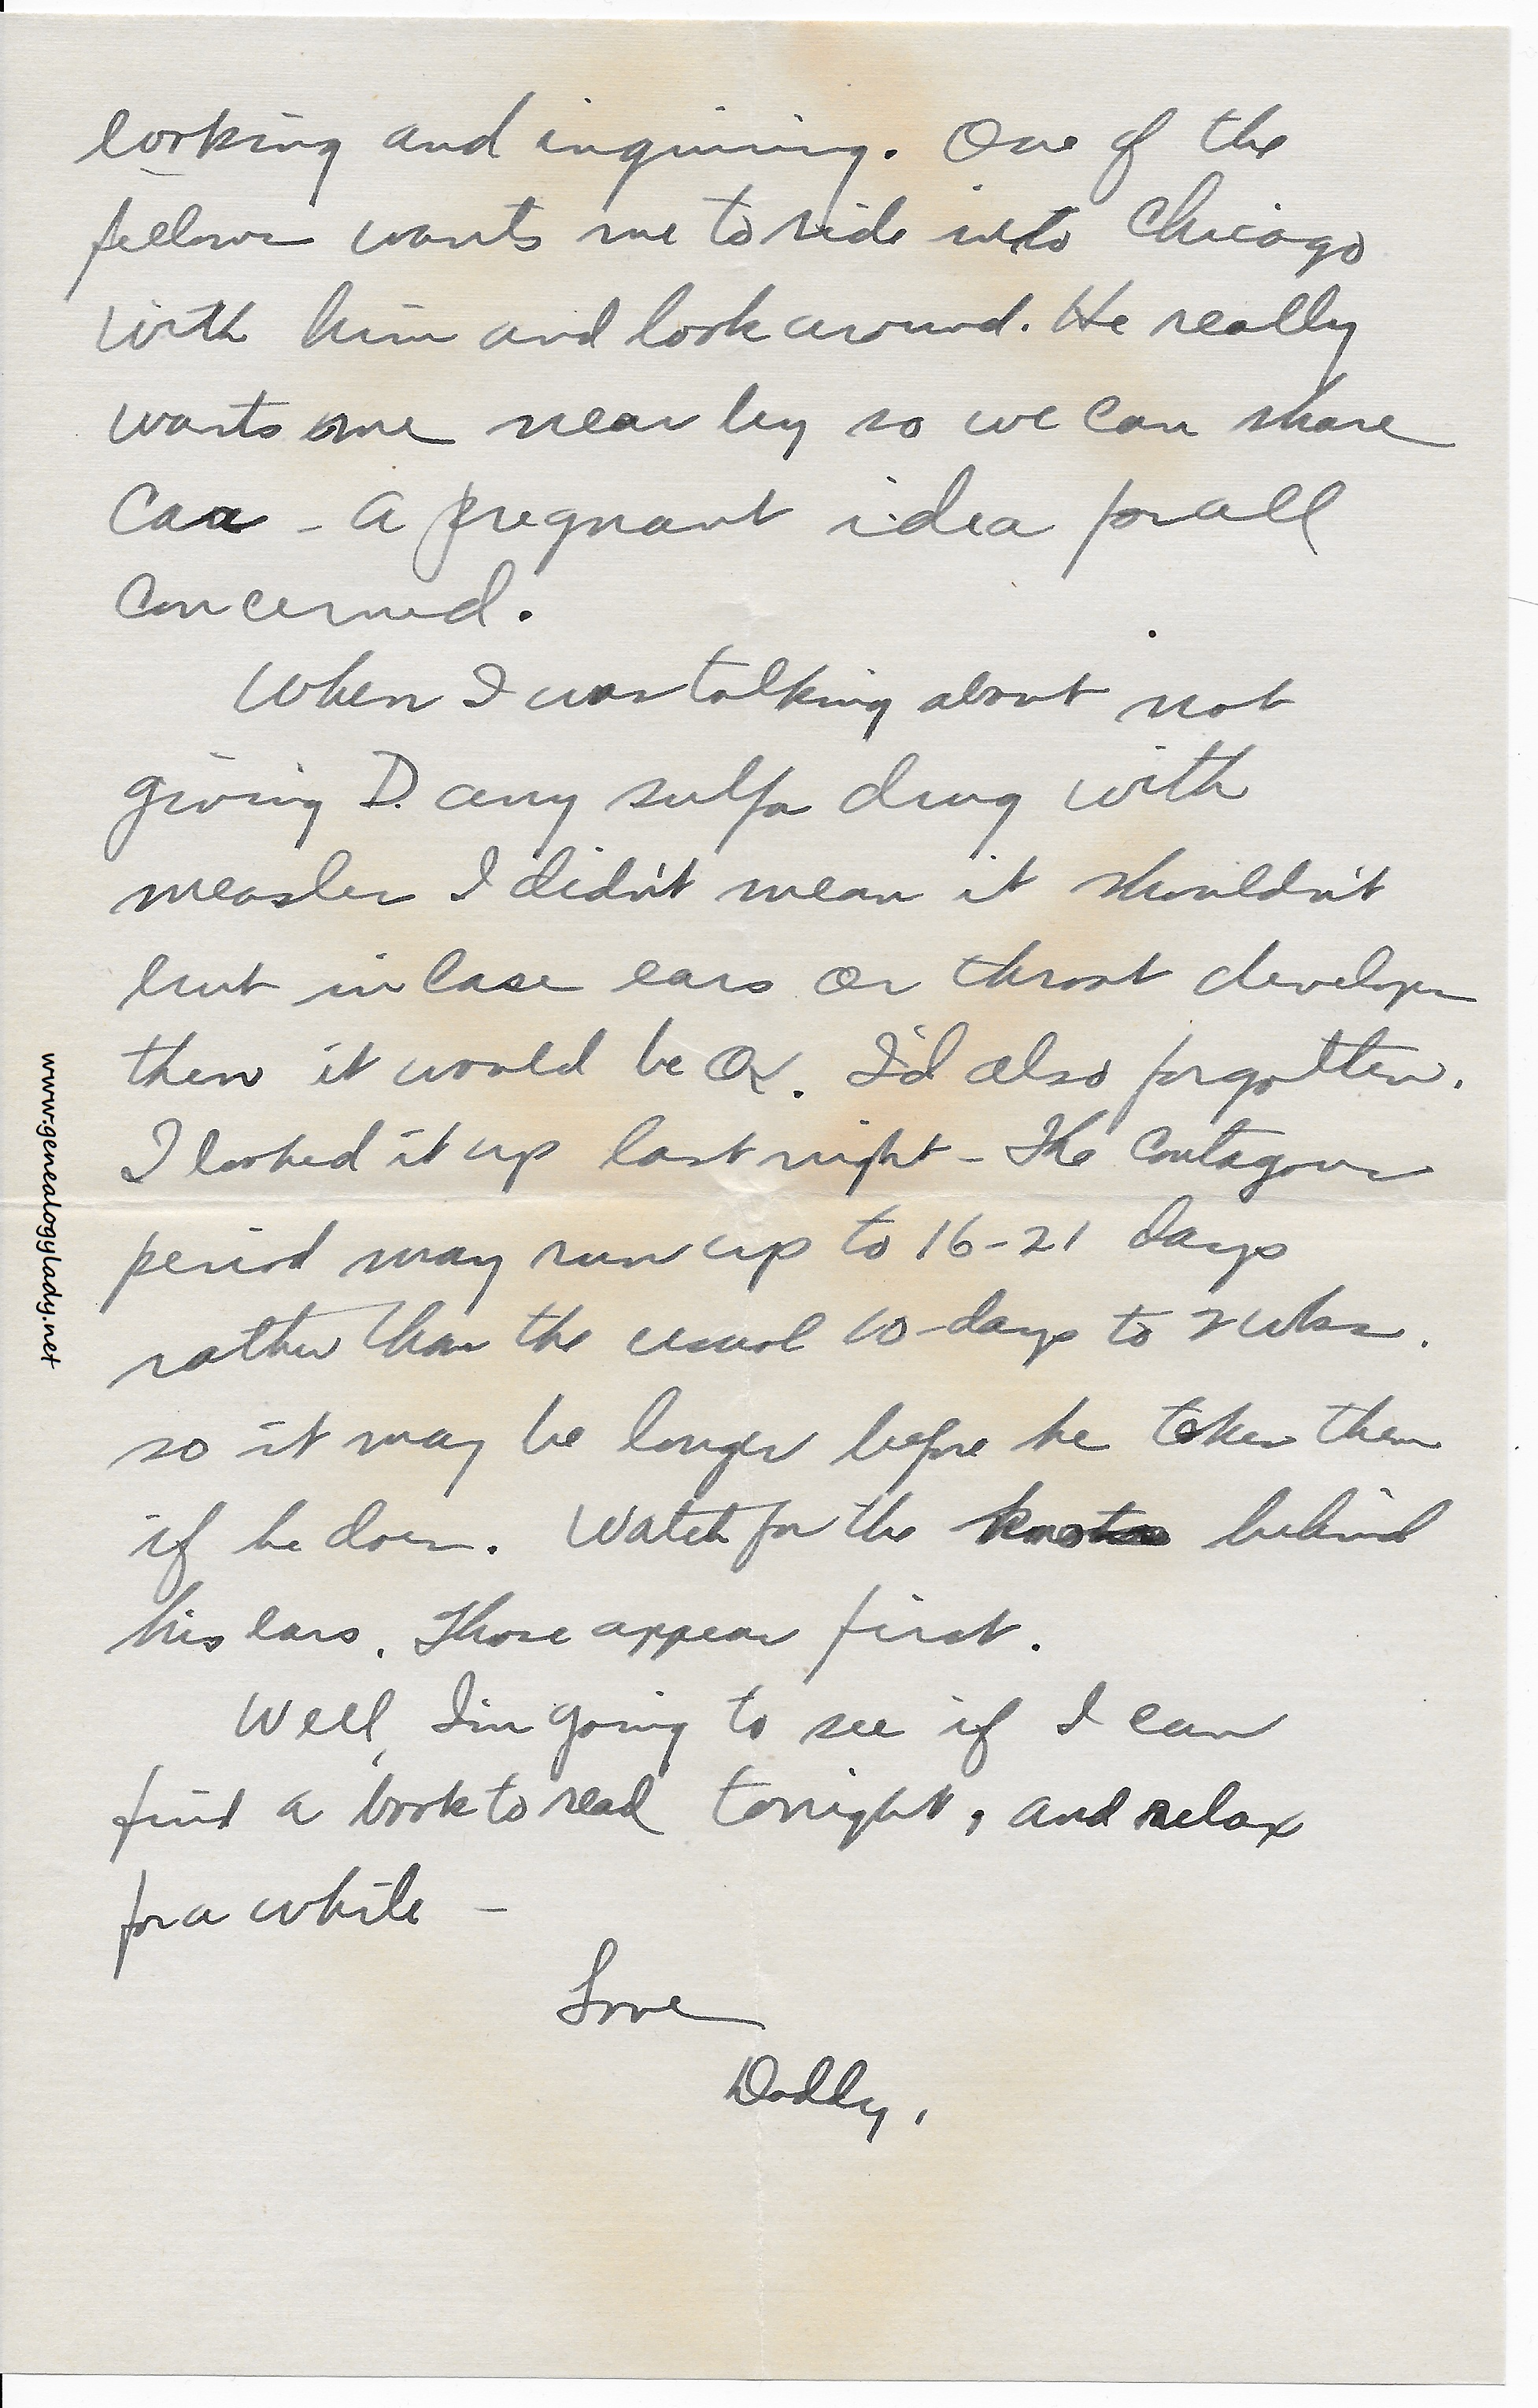 looking and inquiring. One of the
fellows wants me to ride into Chicago
with him and look around. He really
wants me near by so we can share
Car - a pregnant idea for all
concerned.
When I was talking about not
giving D. any sulfa drug with
measles I didn't mean it shouldn't
but in case ears or throat develops
then it would be OK. I'd also forgotten.
I looked it up last night - The contagous
period may run up to 16-21 days
rather than the usual 10-days to 2 wks.
so it may be longer before he takes them
if he does. Watch for the knots behind
his ears. Those appear first.
Well, I'm going to see if I can
find a book to read tonight, and relax
for a while -
Love
Daddy.
www.genealogylady.net